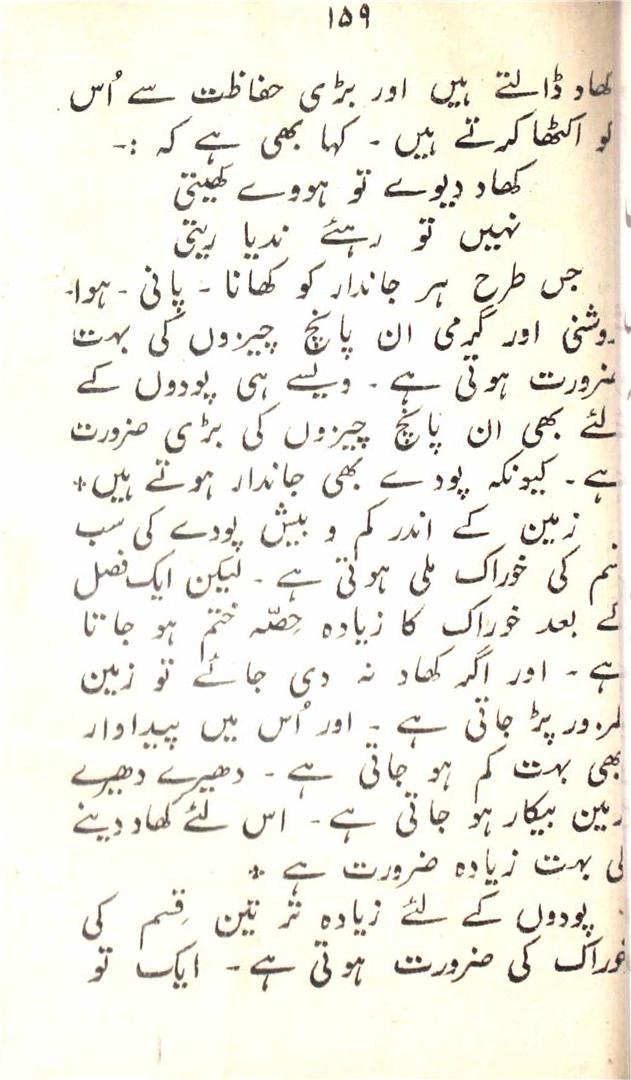 ۱۵۹
کھاد ڈالتے ہیں اور بڑی حفاظت سے اُس
کو اکٹھا کرتے ہیں ۔ کہا بھی ہے کہ :۔
کھاد دیوے تو ہووے کھیتی
نہیں تو رہئے ندیا ریتی
جس طرح ہر جاندار کو کھانا ۔ پانی ۔ ہوا۔
روشنی اور گرمی ان پانچ چیزوں کی بہت
ضرورت ہوتی ہے ۔ ویسے ہی پودوں کے
لئے بھی ان پانچ چیزوں کی بڑی ضرورت
ہے ۔ کیونکہ پودے بھی جاندار ہوتے ہیں *
زمین کے اندر کم و بیش پودے کی سب
قسم کی خوراک ملی ہوتی ہے ۔ لیکن ایک فصل
کے بعد خوراک کا زیادہ حِصّہ ختم ہو جاتا
ہے ۔ اور اگر کھاد نہ دی جائے تو زمین
کمزور پڑ جاتی ہے ۔ اور اُس میں پیداوار
بھی بہت کم ہو جاتی ہے ۔ دھیرے دھیرے
زمین بیکار ہو جاتی ہے ۔ اس لئے کھاد دینے
کی بہت زیادہ ضرورت ہے *
پودوں کے لئے زیادہ تر تین قِسم کی
خوراک کی ضرورت ہوتی ہے ۔ ایک تو